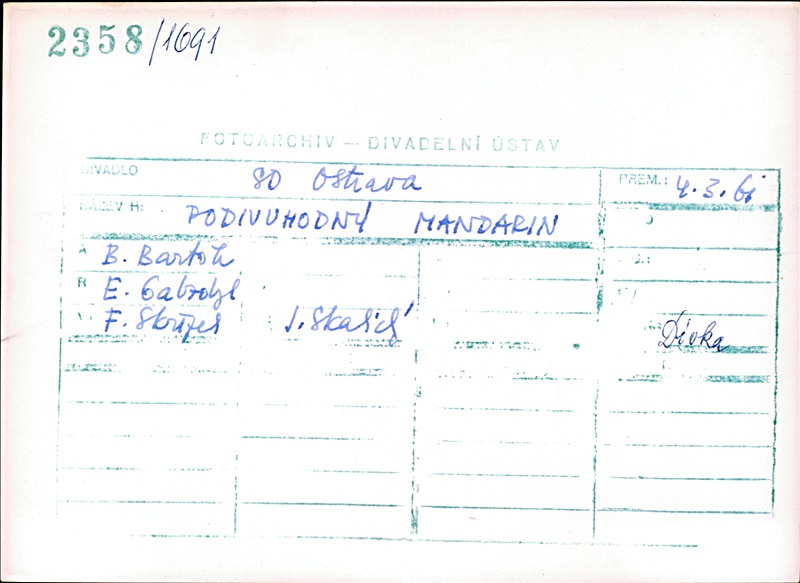 2358/1691
FOTOARCHIV — DIVADELNÍ ÚSTAV
DIVADLO SD Ostrava PREM.: 4.3.61
NÁZEV HRY: PODIVUHODNÝ MANDARIN
A B. Bartók
R E. Gabzdyl
V F. Skřípek J. Skalický
Dívka